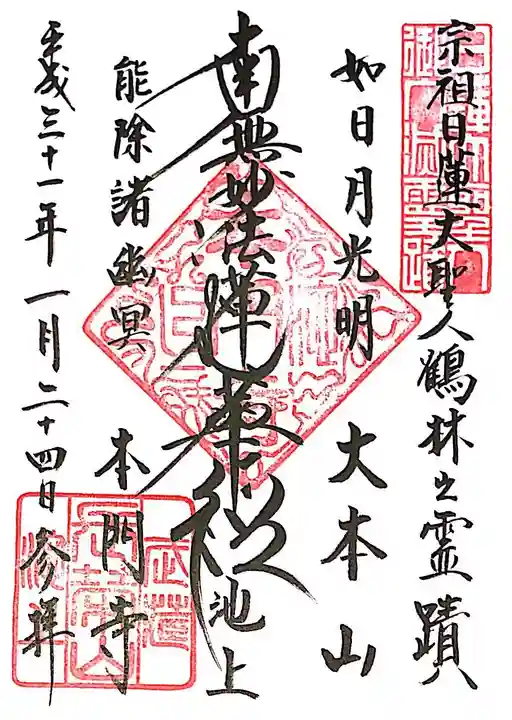 宗祖日蓮大聖人鶴林之霊蹟
如日月光明 大本山
南無妙法蓮華経 池上
能除諸幽冥 本門寺
平成三十一年一月二十四日参拝